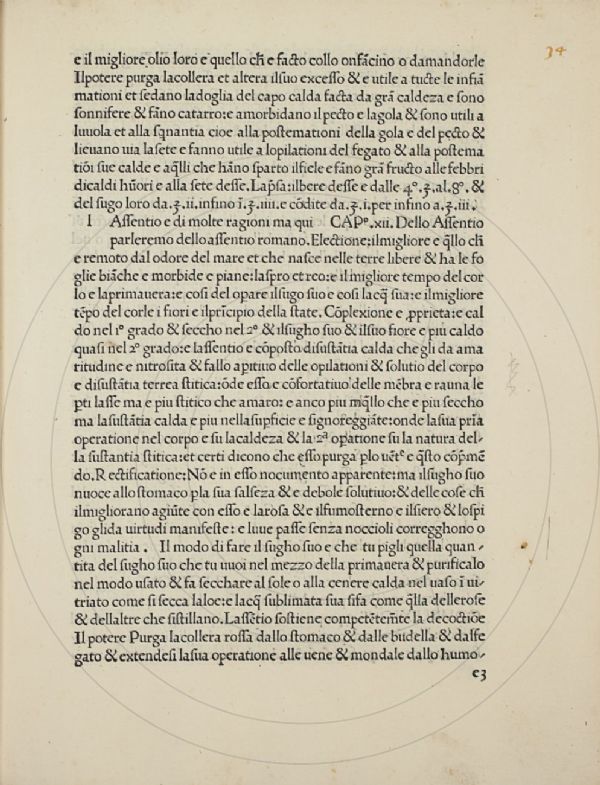 34
e il migliore olio loro e quello ch̄ e facto collo onfācino o damandorle
Ilpotere purga lacollera et altera ilsuo excesso & e utile a tucte le infiā
mationi et sedano ladoglia del capo calda facta da grā caldeza e sono
sonnifere & fāno catarro:e amorbidano il pecto e lagola & sono utili a
luuola et alla sqnantia cioe alla postemationi della gola e del pecto &
lieuano uia lasete e fanno utile a lopilationi del fegato & alla postema
tiōi sue calde e aq̄lli che hāno sparto ilfiele e fāno grā fructo alle febbri
dicaldi hūori e alla sete desse. Lap̄sa:ilbere desse e dalle 4°.ʒ.al.8°.&
del sugo loro da.ʒ.ii.infino ī.ʒ.iiii.e cōdite da.ʒ.i.per infino a.ʒ.iii.
l Assentio e di molte ragioni ma qui CAPᵒ.xii. Dello Assentio
parleremo dello assentio romano. Electione:ilmigliore e q̄llo ch̄
e remoto dal odore del mare et che nasce nelle terre libere & ha le fo
glie biāche e morbide e piane:laspro et reo:e il migliore tempo del cor
lo e laprimauera:e cosi del opare ilsugo suo e cosi lacq̄ sua:e ilmigliore
tēpo del corle i fiori e ilprīcipio della state. Cōplexione e ꝓprieta:e cal
do nel 1° grado & seccho nel 2° & ilsugho suo & ilsuo fiore e piu caldo
quasi nel 2° grado:e lassentio e cōposto disustātia calda chegli da ama
ritudine e nitrosita & fallo apitiuo delle opilationi & solutio del corpo
e disustātia terrea stitica:ōde esso e cōfortatiuo delle mēbra e rauna le
p̄ti lasse ma e piu stitico che amaro: e anco piu mq̄llo che e piu seccho
ma lasustātia calda e piu nellasupficie e signoreggiāte:onde lasua pria
operatione nel corpo e su lacaldeza & la 2ᵃ opatione su la natura del-
la sustantia stitica:et certi dicono che esso purga plo uētᵉ e q̄sto cōpmē
do.Rectificatione:Nō e in esso nocumento apparente:ma ilsugho suo
nuoce allo stomaco pla sua salseza & e debole solutiuo:& delle cose ch̄
ilmigliorano agiūte con esso e larosa & e ilfumosterno e ilsiero & lospi
go glida uirtudi manifeste: e luue passe senza noccioli corregghono o
gni malitia. Il modo di fare il sugho suo e che tu pigli quella quan-
tita del sugho suo che tu uuoi nel mezzo della primauera & purificalo
nel modo usato & fa secchare al sole o alla cenere calda nel uaso ī ui-
triato come si secca laloe:e lacq̄ sublimata sua sifa come q̄lla dellerose
& dellaltre che sistillano. Lassētio sostiene competētem̄te la decoctiōe
Il potere Purga lacollera rossa dallo stomaco & dalle budella & dalfe
gato & extendesi lasua operatione alle uene & mondale dallo humo-
e3